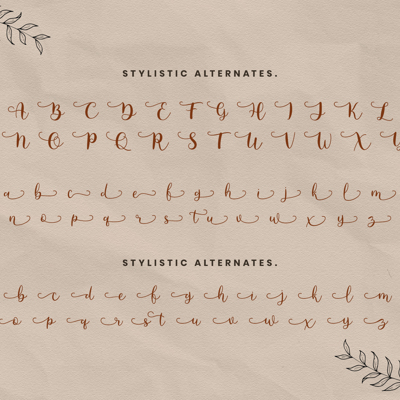 STYLISTIC ALTERNATES.
A B C D E F G H I J K L
N O P Q R S T U V W X Y
a b c d e f g h i j k l m
n o p q r s t u v w x y z
STYLISTIC ALTERNATES.
b c d e f g h i j k l m
o p q r s t u v w x y z